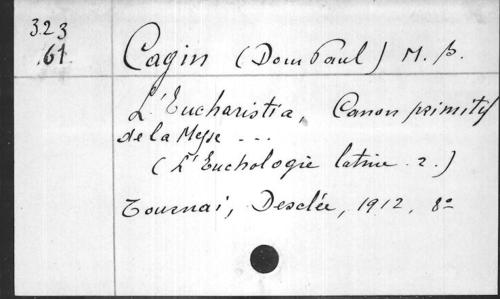 323
61
Cagin (Dom Paul) M. B.
L'Eucharistia, Canon primitif
de la Messe ...
(L'Euchologie latine. 2.)
Tournai, Desclée, 1912, 8º